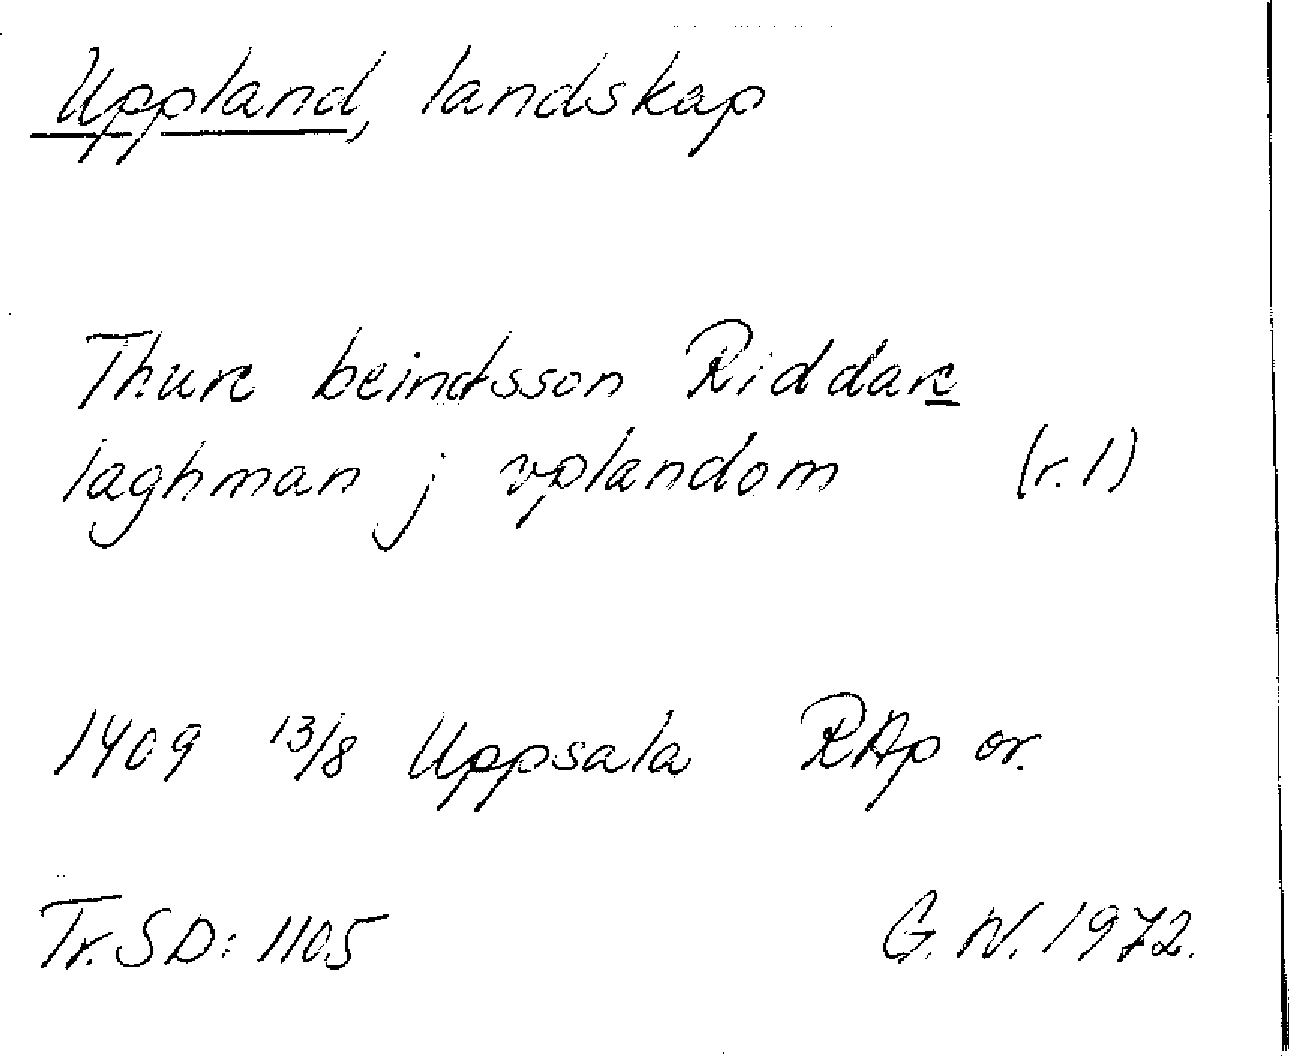 Uppland, landskap
Thure beindtsson Riddare
laghman j vplandom (r. 1)
1409 13/8 Uppsala RAp or.
Tr. SD: 1105 G. W. 1972.